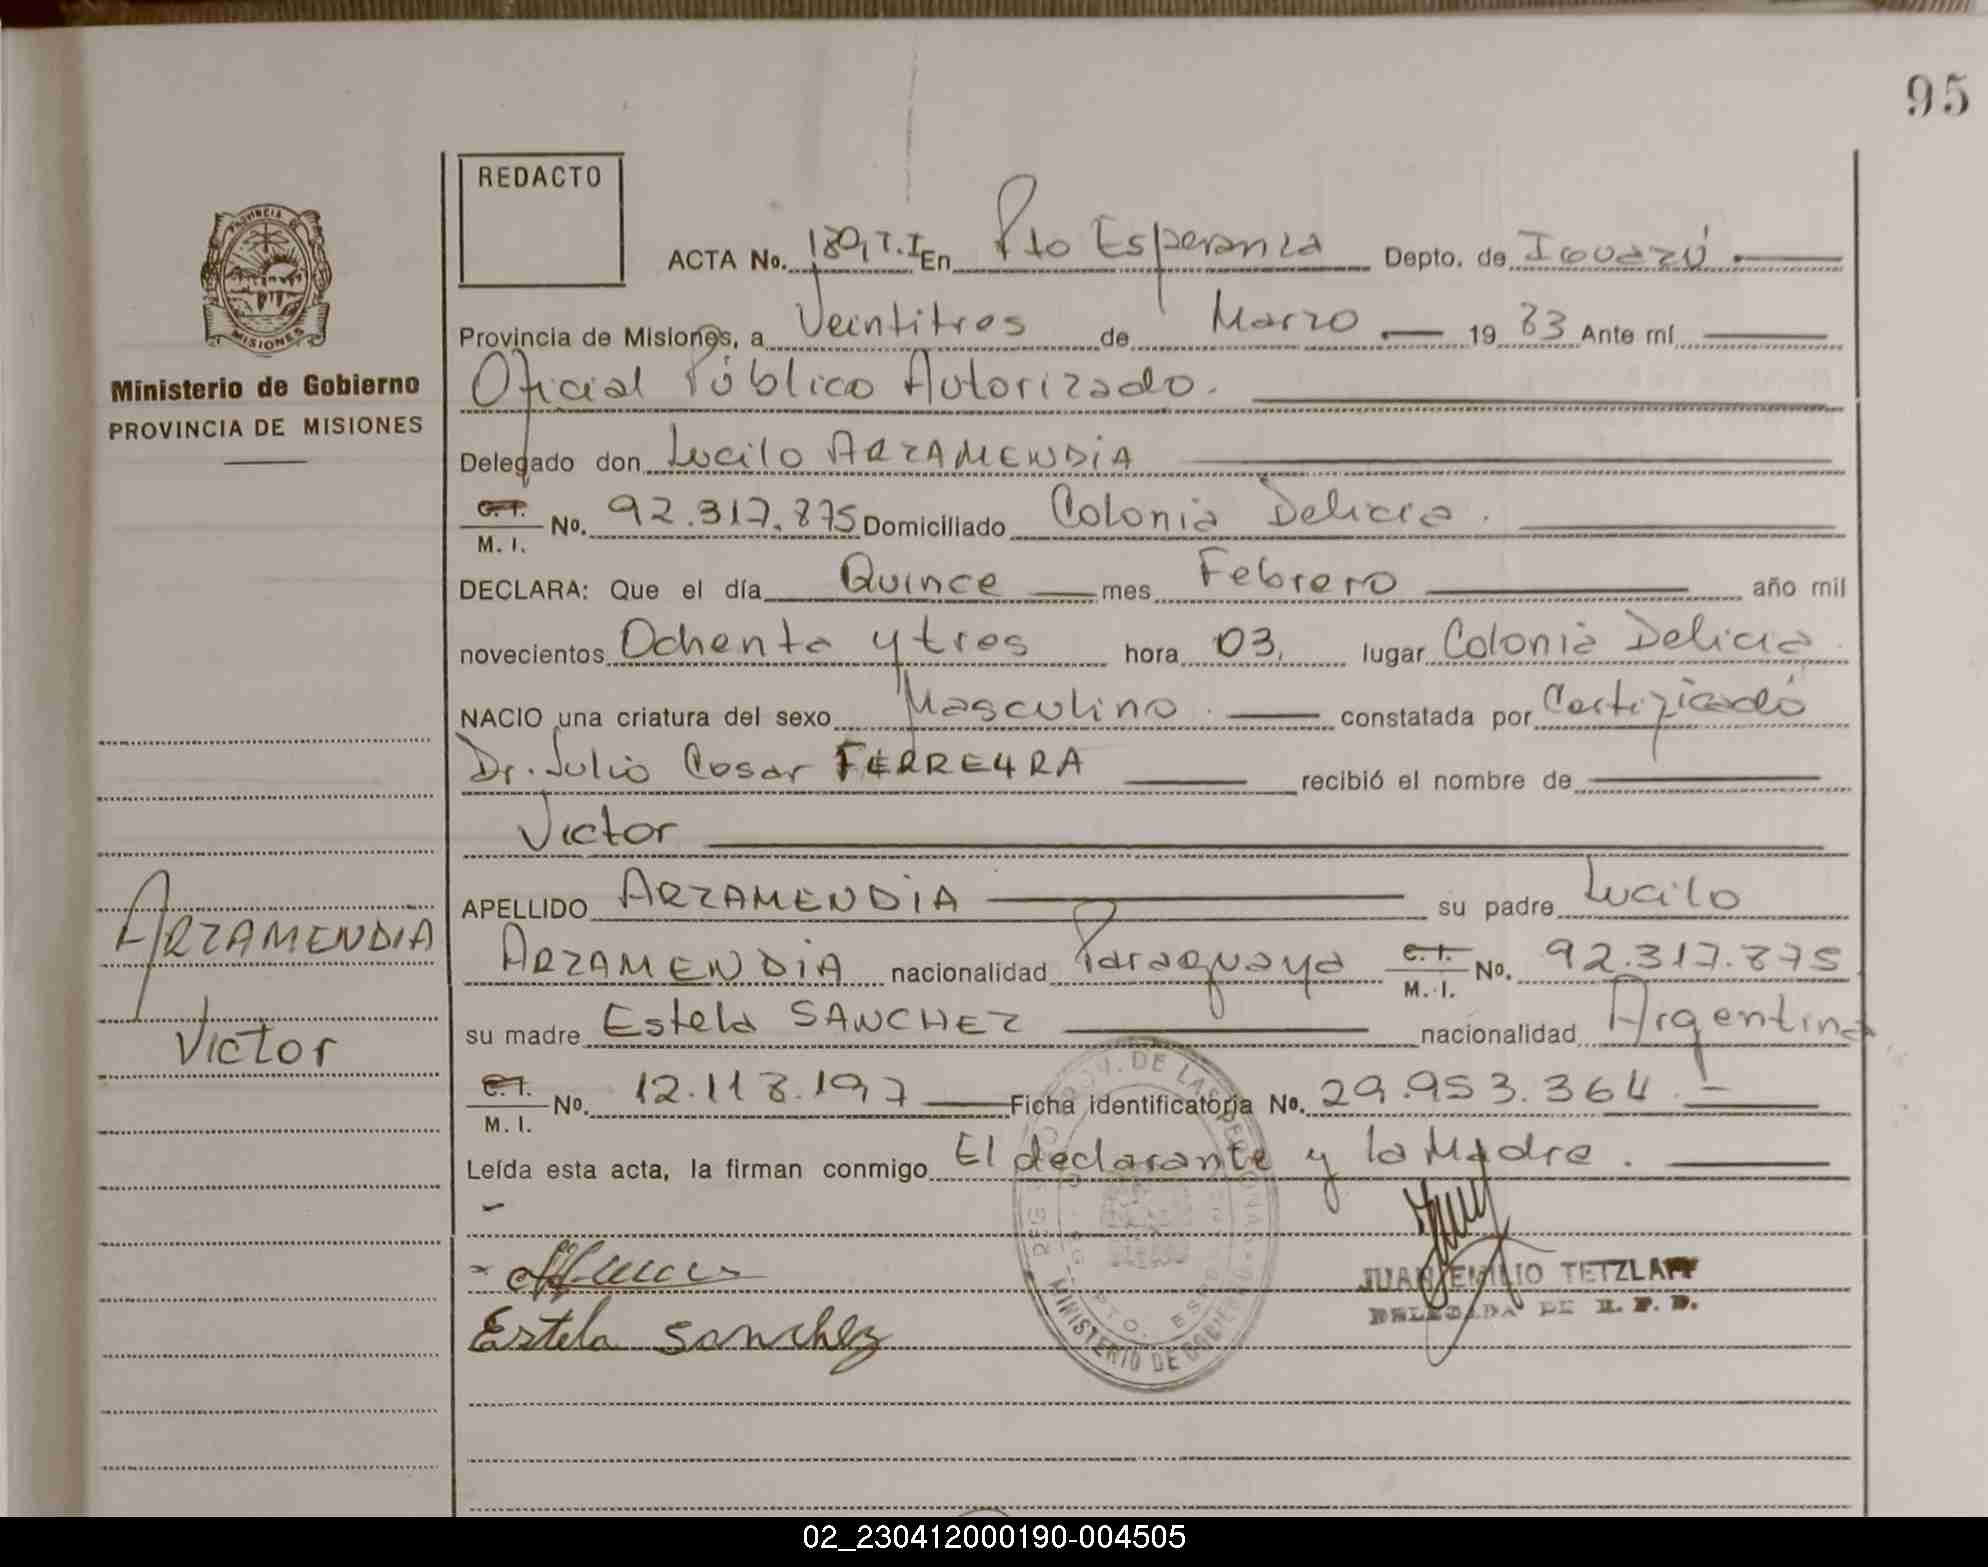 95
REDACTO
ACTA No. 180, T.I En Pto Esperanza Depto. de Iguazú
Provincia de Misiones, a Veintitres de Marzo 1983 Ante mí
Oficial Público Autorizado.
Delegado don Lucilo ARZAMENDIA
C.I. M.I. No. 92.317.875 Domiciliado Colonia Delicia.
DECLARA: Que el día Quince mes Febrero año mil
novecientos Ochenta y tres hora 03, lugar Colonia Delicia.
NACIO una criatura del sexo Masculino. constatada por Certificado
Dr. Julio Cesar FERREYRA recibió el nombre de
Victor
APELLIDO ARZAMENDIA su padre Lucilo
ARZAMENDIA nacionalidad Paraguaya C.I. M.I. No. 92.317.875
su madre Estela SANCHEZ nacionalidad Argentina
C.I. M.I. No. 12.118.197 Ficha identificatoria No. 29.953.364.-
Leída esta acta, la firman conmigo El declarante y la Madre.
Estela Sanchez
JUAN EMILIO TETZLAFF
DELEGADA DE R. P. P.
PROVINCIA DE MISIONES
Ministerio de Gobierno
PROVINCIA DE MISIONES
ARZAMENDIA
Victor
PROV. DE LAS PERSONAS
MINISTERIO DE GOBIERNO
02_230412000190-004505